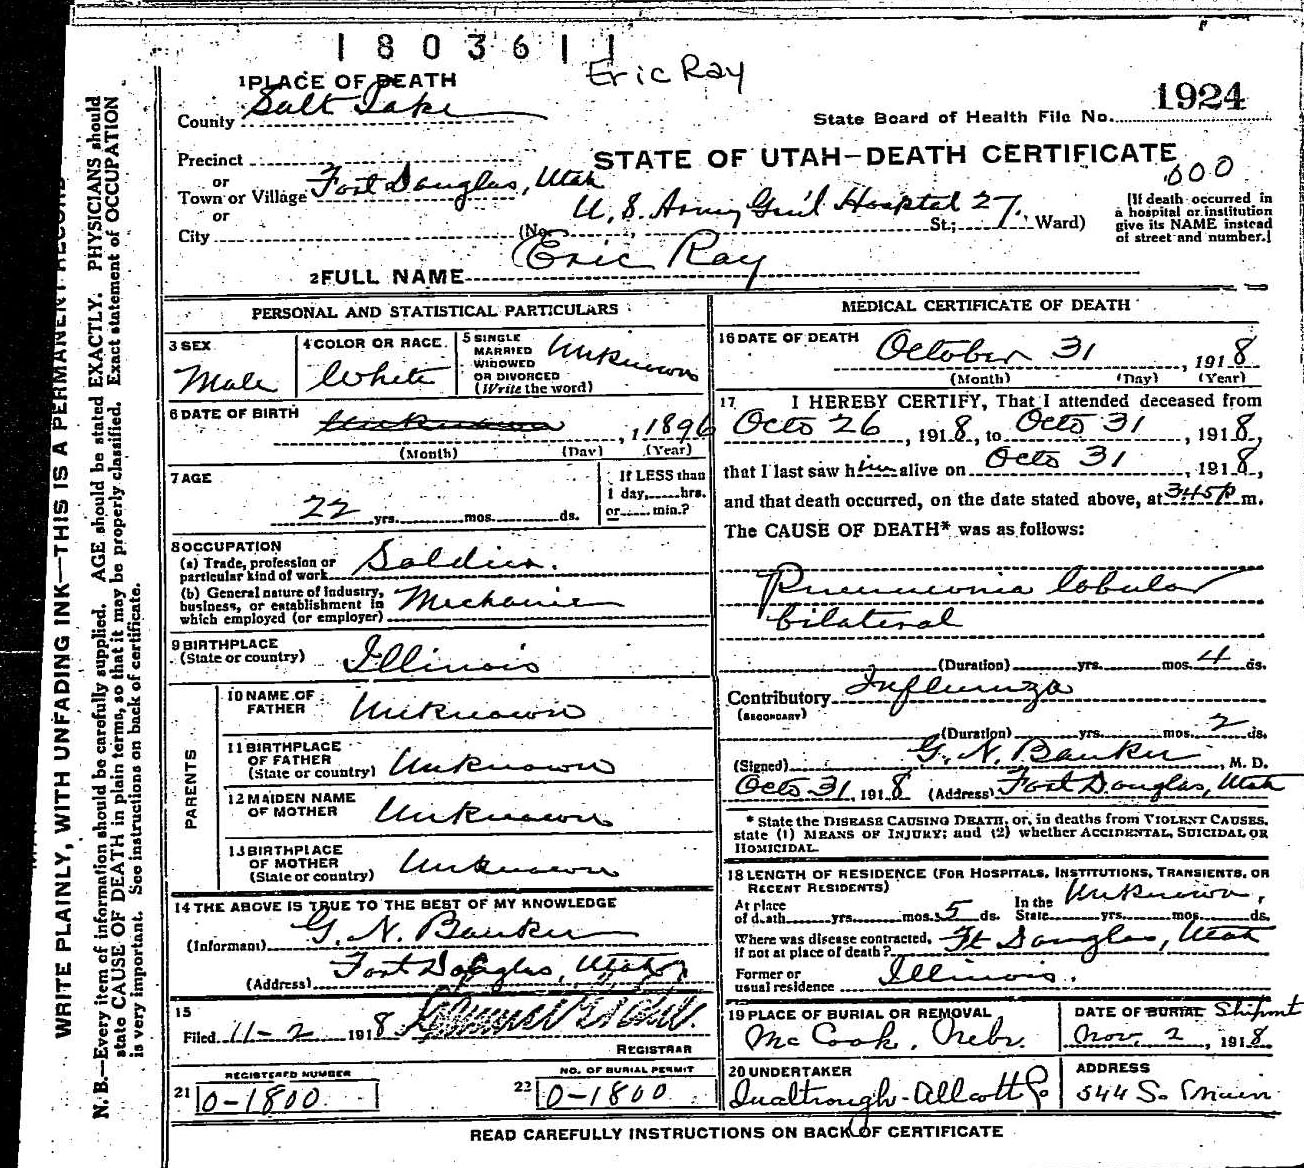 1803611
Eric Ray
1 PLACE OF DEATH
County Salt Lake
1924
State Board of Health File No.
STATE OF UTAH—DEATH CERTIFICATE
000
Precinct
or
Town or Village Fort Douglas, Utah
or
City
(No. U. S. Army Gen'l Hospital 27. St.; Ward)
[If death occurred in
a hospital or institution
give its NAME instead
of street and number.]
2 FULL NAME Eric Ray
PERSONAL AND STATISTICAL PARTICULARS
3 SEX
Male
4 COLOR OR RACE
White
5 SINGLE
MARRIED
WIDOWED
OR DIVORCED
(Write the word)
Unknown
6 DATE OF BIRTH
Unknown, 1 1896
(Month) (Day) (Year)
7 AGE
22 yrs. mos. ds.
If LESS than
1 day, hrs.
or min.?
8 OCCUPATION
(a) Trade, profession or
particular kind of work Soldier.
(b) General nature of industry,
business, or establishment in
which employed (or employer) Mechanic
9 BIRTHPLACE
(State or country) Illinois
PARENTS
10 NAME OF
FATHER Unknown
11 BIRTHPLACE
OF FATHER
(State or country) Unknown
12 MAIDEN NAME
OF MOTHER Unknown
13 BIRTHPLACE
OF MOTHER
(State or country) Unknown
14 THE ABOVE IS TRUE TO THE BEST OF MY KNOWLEDGE
(Informant) G. N. Bunker
(Address) Fort Douglas, Utah
15
Filed 11-2 1918
REGISTRAR
REGISTERED NUMBER
21 0-1800
NO. OF BURIAL PERMIT
22 0-1800
MEDICAL CERTIFICATE OF DEATH
16 DATE OF DEATH
October 31, 1918
(Month) (Day) (Year)
17 I HEREBY CERTIFY, That I attended deceased from
Octo 26, 1918, to Octo 31, 1918,
that I last saw him alive on Octo 31, 1918,
and that death occurred, on the date stated above, at 3:45 P m.
The CAUSE OF DEATH* was as follows:
Pneumonia lobular
bilateral
(Duration) yrs. mos. 4 ds.
Contributory Influenza
(SECONDARY)
(Duration) yrs. mos. 2 ds.
(Signed) G. N. Bunker, M. D.
Octo 31, 1918 (Address) Fort Douglas, Utah
* State the DISEASE CAUSING DEATH, or, in deaths from VIOLENT CAUSES,
state (1) MEANS OF INJURY; and (2) whether ACCIDENTAL, SUICIDAL OR
HOMICIDAL.
18 LENGTH OF RESIDENCE (FOR HOSPITALS, INSTITUTIONS, TRANSIENTS, OR
RECENT RESIDENTS)
At place
of death yrs. mos. 5 ds.
In the
State yrs. mos. ds. Unknown,
Where was disease contracted,
if not at place of death? Ft Douglas, Utah
Former or
usual residence Illinois.
19 PLACE OF BURIAL OR REMOVAL
McCook, Nebr.
DATE OF BURIAL Shipmt
Nov. 2, 1918
20 UNDERTAKER
Qualtrough-Allcott Co
ADDRESS
544 So Main
READ CAREFULLY INSTRUCTIONS ON BACK OF CERTIFICATE
WRITE PLAINLY, WITH UNFADING INK—THIS IS A PERMANENT RECORD
N. B.—Every item of information should be carefully supplied. AGE should be stated EXACTLY. PHYSICIANS should
state CAUSE OF DEATH in plain terms, so that it may be properly classified. Exact statement of OCCUPATION
is very important. See instructions on back of certificate.